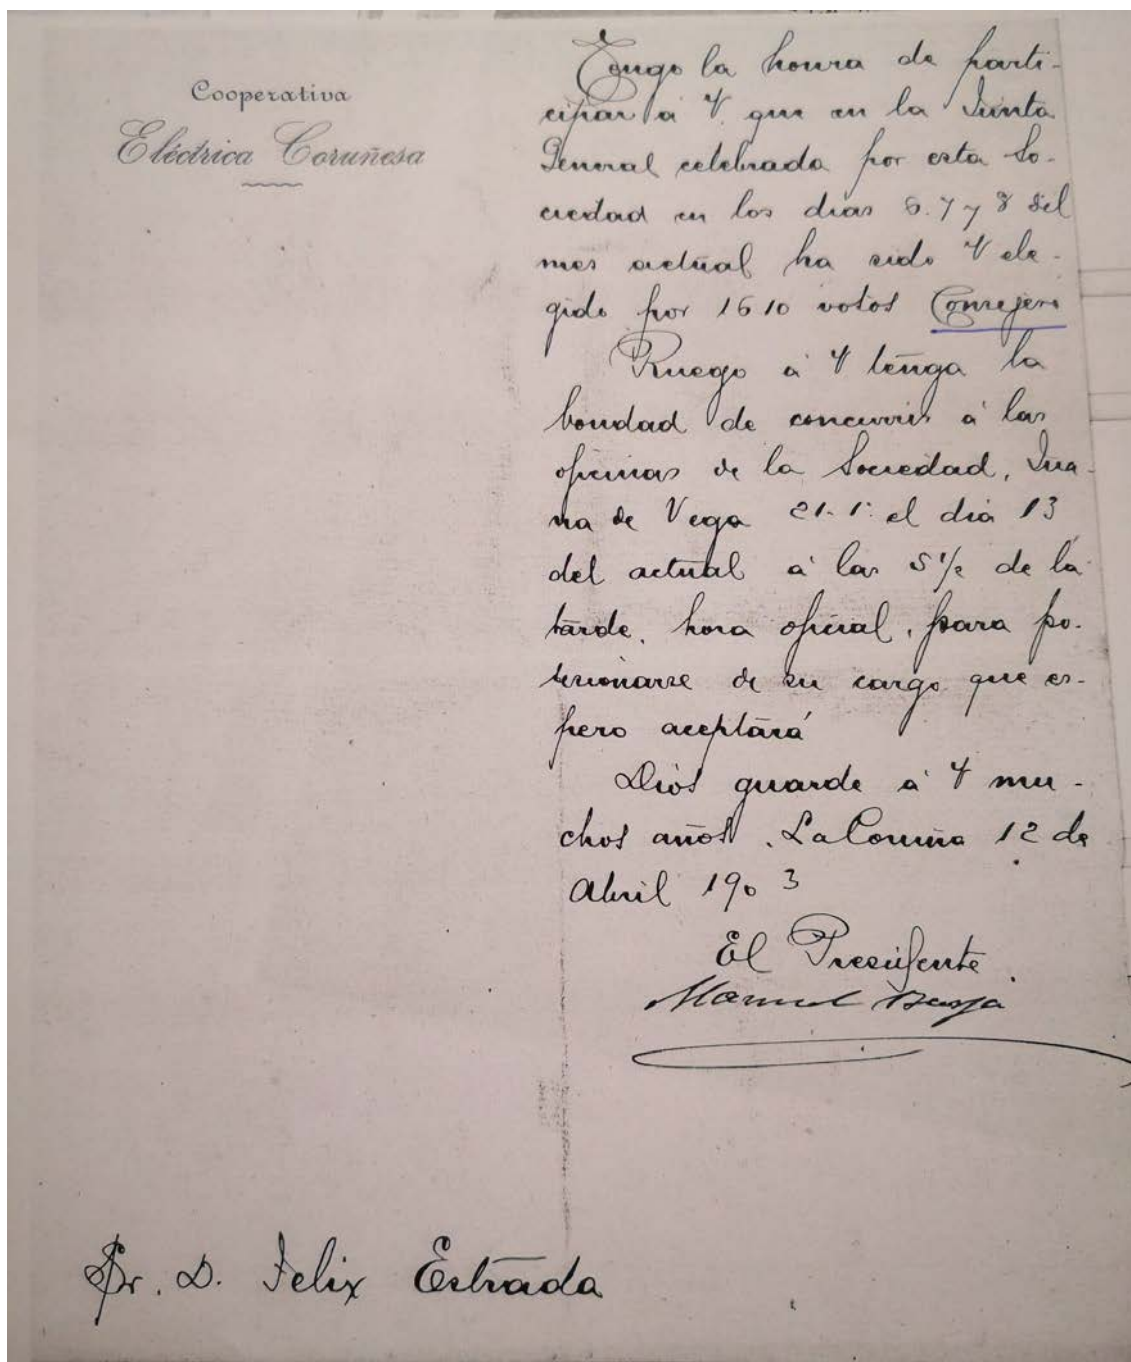 Cooperativa
Eléctrica Coruñesa
Tengo la honra de parti-
cipar á V. que en la Junta
General celebrada por esta So-
ciedad en los dias 6. 7 y 8 del
mes actual ha sido V ele-
gido por 1610 votos Consejero
Ruego á V tenga la
bondad de concurrir á las
oficinas de la Sociedad, Jua-
na de Vega 21-1º el dia 13
del actual á las 5 1/2 de la
tarde, hora oficial, para po-
sesionarse de su cargo que es-
pero aceptará
Dios guarde á V mu-
chos años. La Coruña 12 de
Abril 1903
El Presidente
Manuel
Sr. D. Felix Estrada